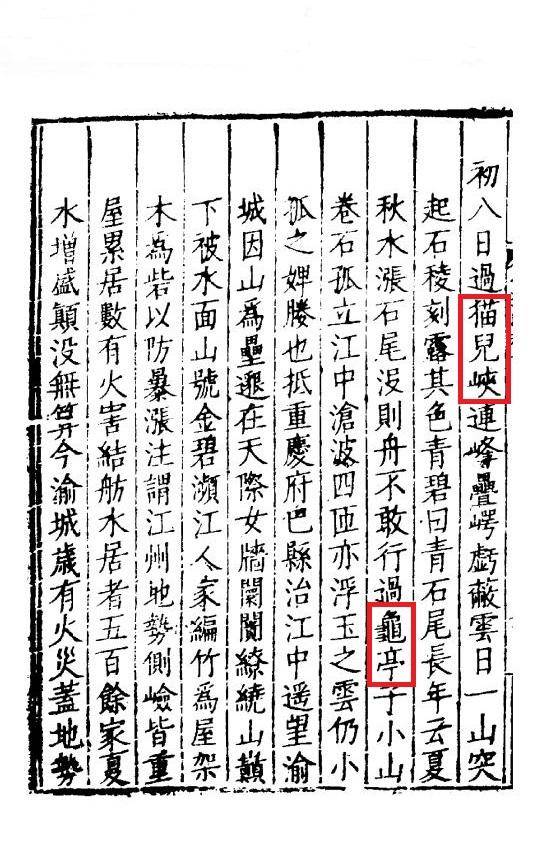 初八日過猫兒峽連峰疊崿虧蔽雲日一山突
起石稜刻露其色青碧曰青石尾長年云夏
秋水漲石尾没則舟不敢行過龜亭子小山
巻石孤立江中滄波四匝亦浮玉之雲仍小
孤之婢媵也抵重慶府巴縣治江中遥望渝
城因山為壘邈在天際女牆闤闠繚繞山巔
下被水面山號金碧瀕江人家編竹為屋架
木為砦以防暴漲注謂江州地勢側嶮皆重
屋累居數有火害結舫水居者五百餘家夏
水增盛顛没無筭今渝城歲有火災蓋地勢